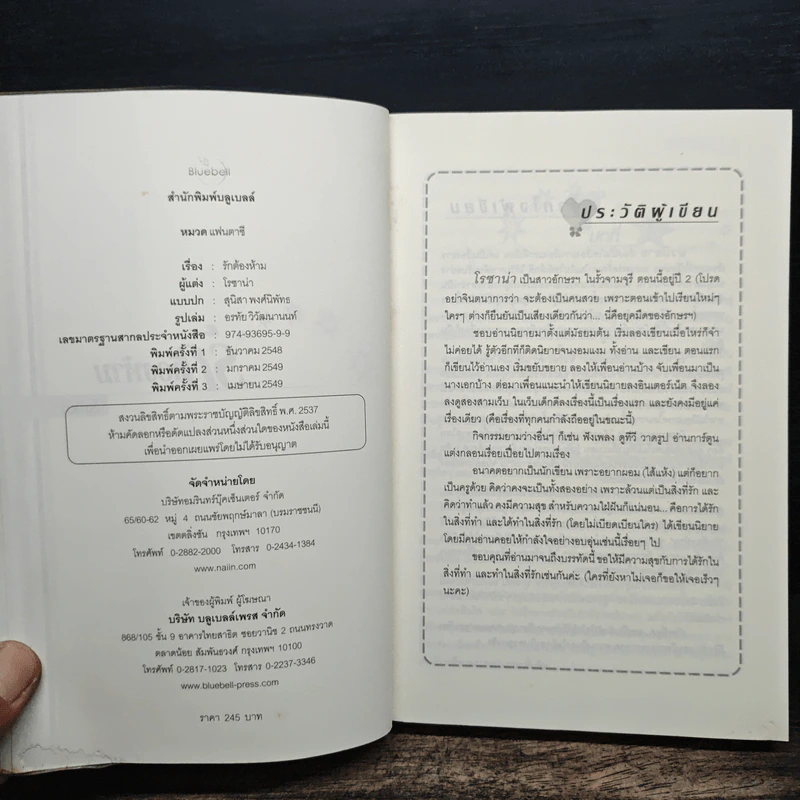 Bluebell
สำนักพิมพ์บลูเบลล์
หมวด แฟนตาซี
เรื่อง : รักต้องห้าม
ผู้แต่ง : โรซาน่า
แบบปก : สุนิสา พงศ์นิพัทธ
รูปเล่ม : อรทัย วิวัฒนานนท์
เลขมาตรฐานสากลประจำหนังสือ : 974-93695-9-9
พิมพ์ครั้งที่ 1 : ธันวาคม 2548
พิมพ์ครั้งที่ 2 : มกราคม 2549
พิมพ์ครั้งที่ 3 : เมษายน 2549
สงวนลิขสิทธิ์ตามพระราชบัญญัติลิขสิทธิ์ พ.ศ. 2537
ห้ามคัดลอกหรือดัดแปลงส่วนหนึ่งส่วนใดของหนังสือเล่มนี้
เพื่อนำออกเผยแพร่โดยไม่ได้รับอนุญาต
จัดจำหน่ายโดย
บริษัทอมรินทร์บุ๊คเซ็นเตอร์ จำกัด
65/60-62 หมู่ 4 ถนนชัยพฤกษ์มาลา (บรมราชชนนี)
เขตตลิ่งชัน กรุงเทพฯ 10170
โทรศัพท์ 0-2882-2000 โทรสาร 0-2434-1384
www.naiin.com
เจ้าของผู้พิมพ์ ผู้โฆษณา
บริษัท บลูเบลล์เพรส จำกัด
868/105 ชั้น 9 อาคารไทยสาธิต ซอยวานิช 2 ถนนทรงวาด
ตลาดน้อย สัมพันธวงศ์ กรุงเทพฯ 10100
โทรศัพท์ 0-2817-1023 โทรสาร 0-2237-3346
www.bluebell-press.com
ราคา 245 บาท
ประวัติผู้เขียน
โรซาน่า เป็นสาวอักษรฯ ในรั้วจามจุรี ตอนนี้อยู่ปี 2 (โปรด
อย่าจินตนาการว่า จะต้องเป็นคนสวย เพราะตอนเข้าไปเรียนใหม่ๆ
ใครๆ ต่างก็ยืนยันเป็นเสียงเดียวกันว่า... นี่คือยุคมืดของอักษรฯ)
ชอบอ่านนิยายมาตั้งแต่มัธยมต้น เริ่มลองเขียนเมื่อไหร่ก็จำ
ไม่ค่อยได้ รู้ตัวอีกทีก็ติดนิยายจนงอมแงม ทั้งอ่าน และเขียน ตอนแรก
ก็เขียนไว้อ่านเอง เริ่มขยับขยาย ลองให้เพื่อนอ่านบ้าง จับเพื่อนมาเป็น
นางเอกบ้าง ต่อมาเพื่อนแนะนำให้เขียนนิยายลงอินเตอร์เน็ต จึงลอง
ลงดูสองสามเว็บ ในเว็บเด็กดีลงเรื่องนี้เป็นเรื่องแรก และยังคงมีอยู่แค่
เรื่องเดียว (คือเรื่องที่ทุกคนกำลังถืออยู่ในขณะนี้)
กิจกรรมยามว่างอื่นๆ ก็เช่น ฟังเพลง ดูทีวี วาดรูป อ่านการ์ตูน
แต่งกลอนเรื่อยเปื่อยไปตามเรื่อง
อนาคตอยากเป็นนักเขียน เพราะอยากผอม (ไส้แห้ง) แต่ก็อยาก
เป็นครูด้วย คิดว่าคงจะเป็นทั้งสองอย่าง เพราะล้วนแต่เป็นสิ่งที่รัก และ
คิดว่าทำแล้ว คงมีความสุข สำหรับความใฝ่ฝันก็แน่นอน... คือการได้รัก
ในสิ่งที่ทำ และได้ทำในสิ่งที่รัก (โดยไม่เบียดเบียนใคร) ได้เขียนนิยาย
โดยมีคนอ่านคอยให้กำลังใจอย่างอบอุ่นเช่นนี้เรื่อยๆ ไป
ขอบคุณที่อ่านมาจนถึงบรรทัดนี้ ขอให้มีความสุขกับการได้รักใน
สิ่งที่ทำ และทำในสิ่งที่รักเช่นกันค่ะ (ใครที่ยังหาไม่เจอก็ขอให้เจอเร็วๆ
นะคะ)